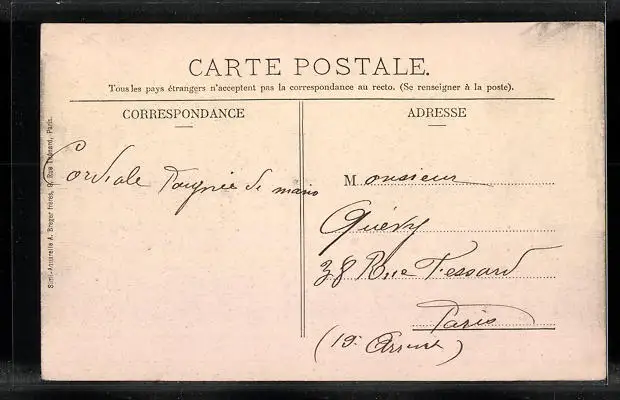 CARTE POSTALE.
Tous les pays étrangers n'acceptent pas la correspondance au recto. (Se renseigner à la poste).
CORRESPONDANCE
Cordiale Poignée de main
ADRESSE
Monsieur
Quévy
38 Rue Fessard
Paris
(19e Arr)
Simi-Aquarelle A. Breger frères, 9, Rue Thénard, Paris.